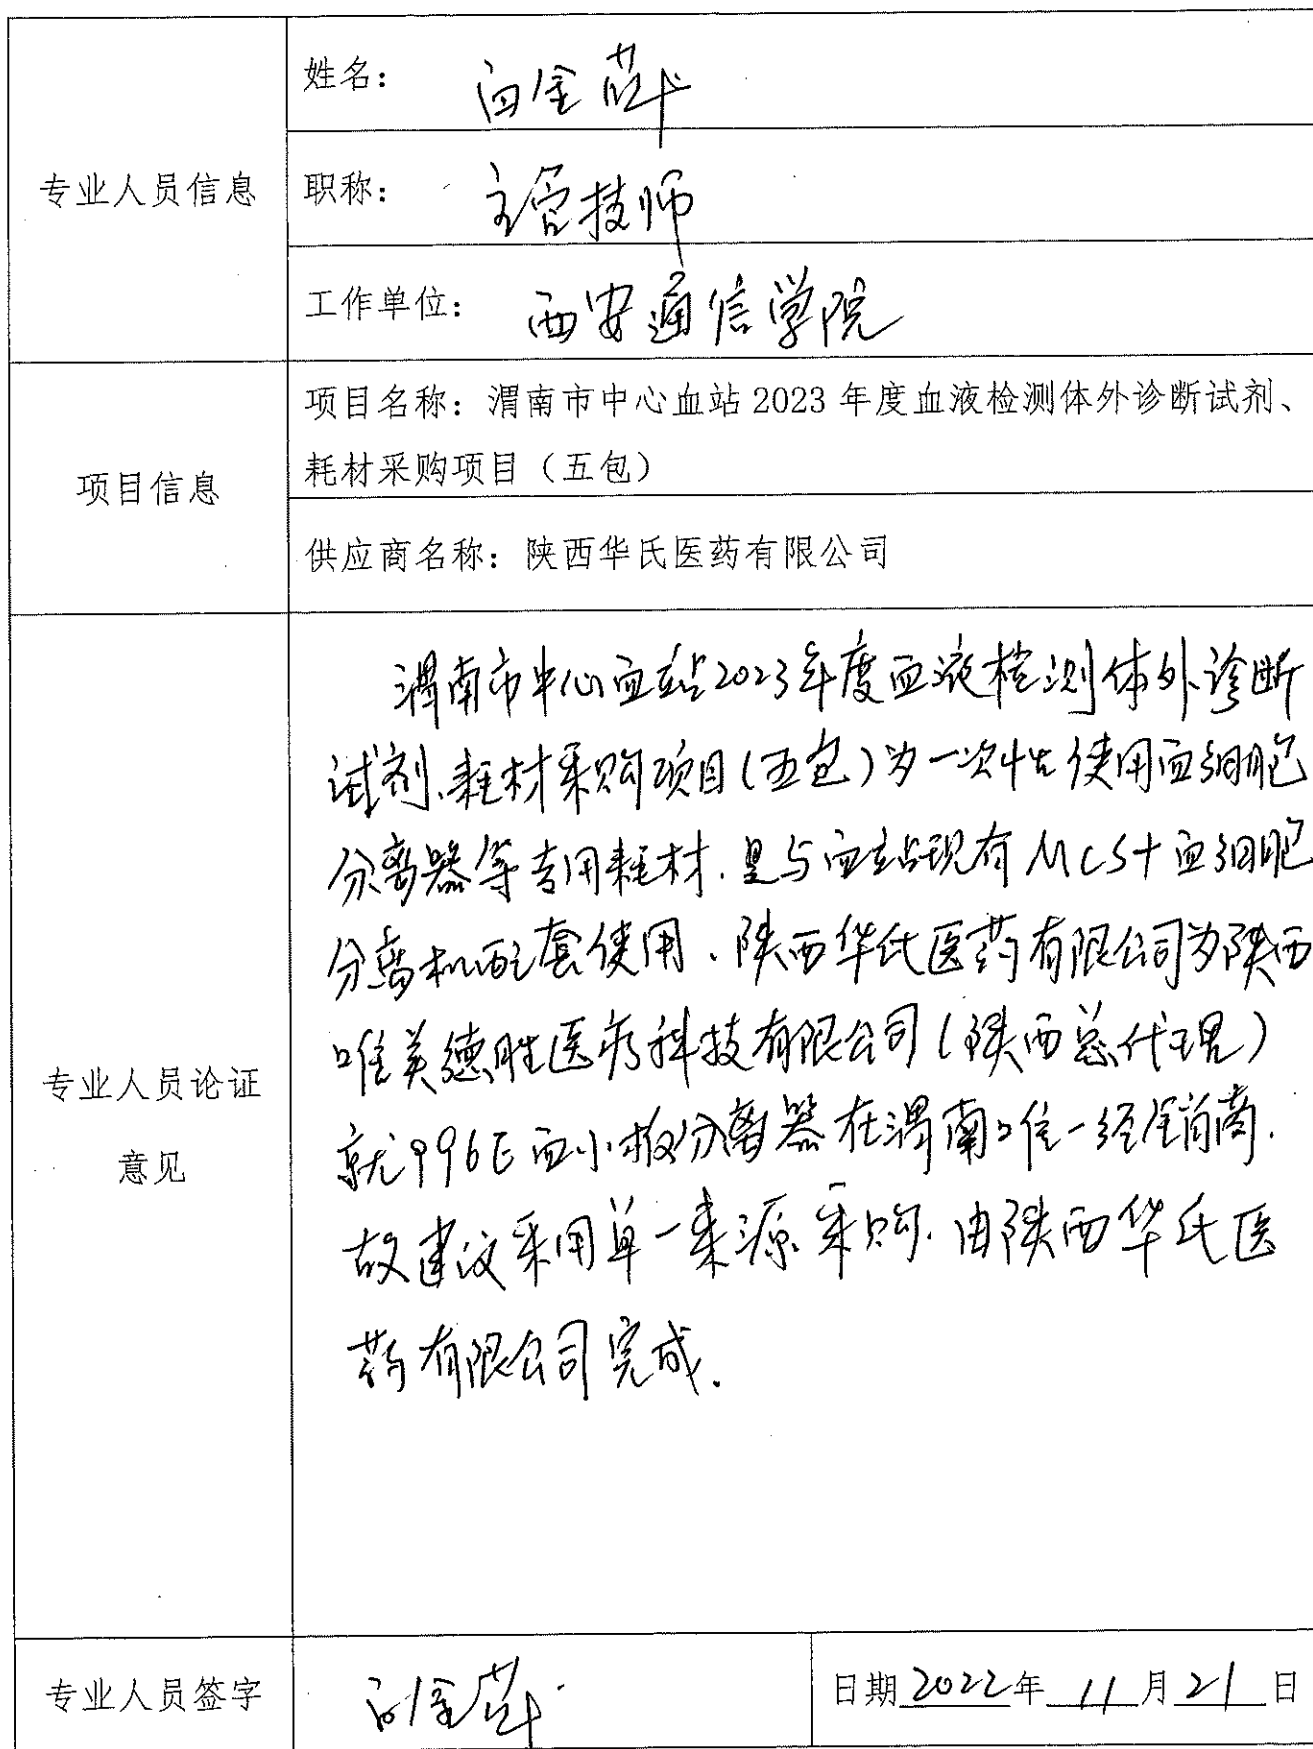 专业人员信息
姓名：白金萍
职称：主管技师
工作单位：西安通信学院
项目信息
项目名称：渭南市中心血站 2023 年度血液检测体外诊断试剂、
耗材采购项目（五包）
供应商名称：陕西华氏医药有限公司
专业人员论证
意见
渭南市中心血站2023年度血液检测体外诊断
试剂、耗材采购项目(五包)为一次性使用血细胞
分离器等专用耗材.是与血站现有MCS+血细胞
分离机配套使用、陕西华氏医药有限公司为陕西
唯美德胜医疗科技有限公司(陕西总代理)
就996E血小板分离器在渭南唯一经销商.
故建议采用单一来源采购.由陕西华氏医
药有限公司完成.
专业人员签字
白金萍
日期 2022 年 11 月 21 日